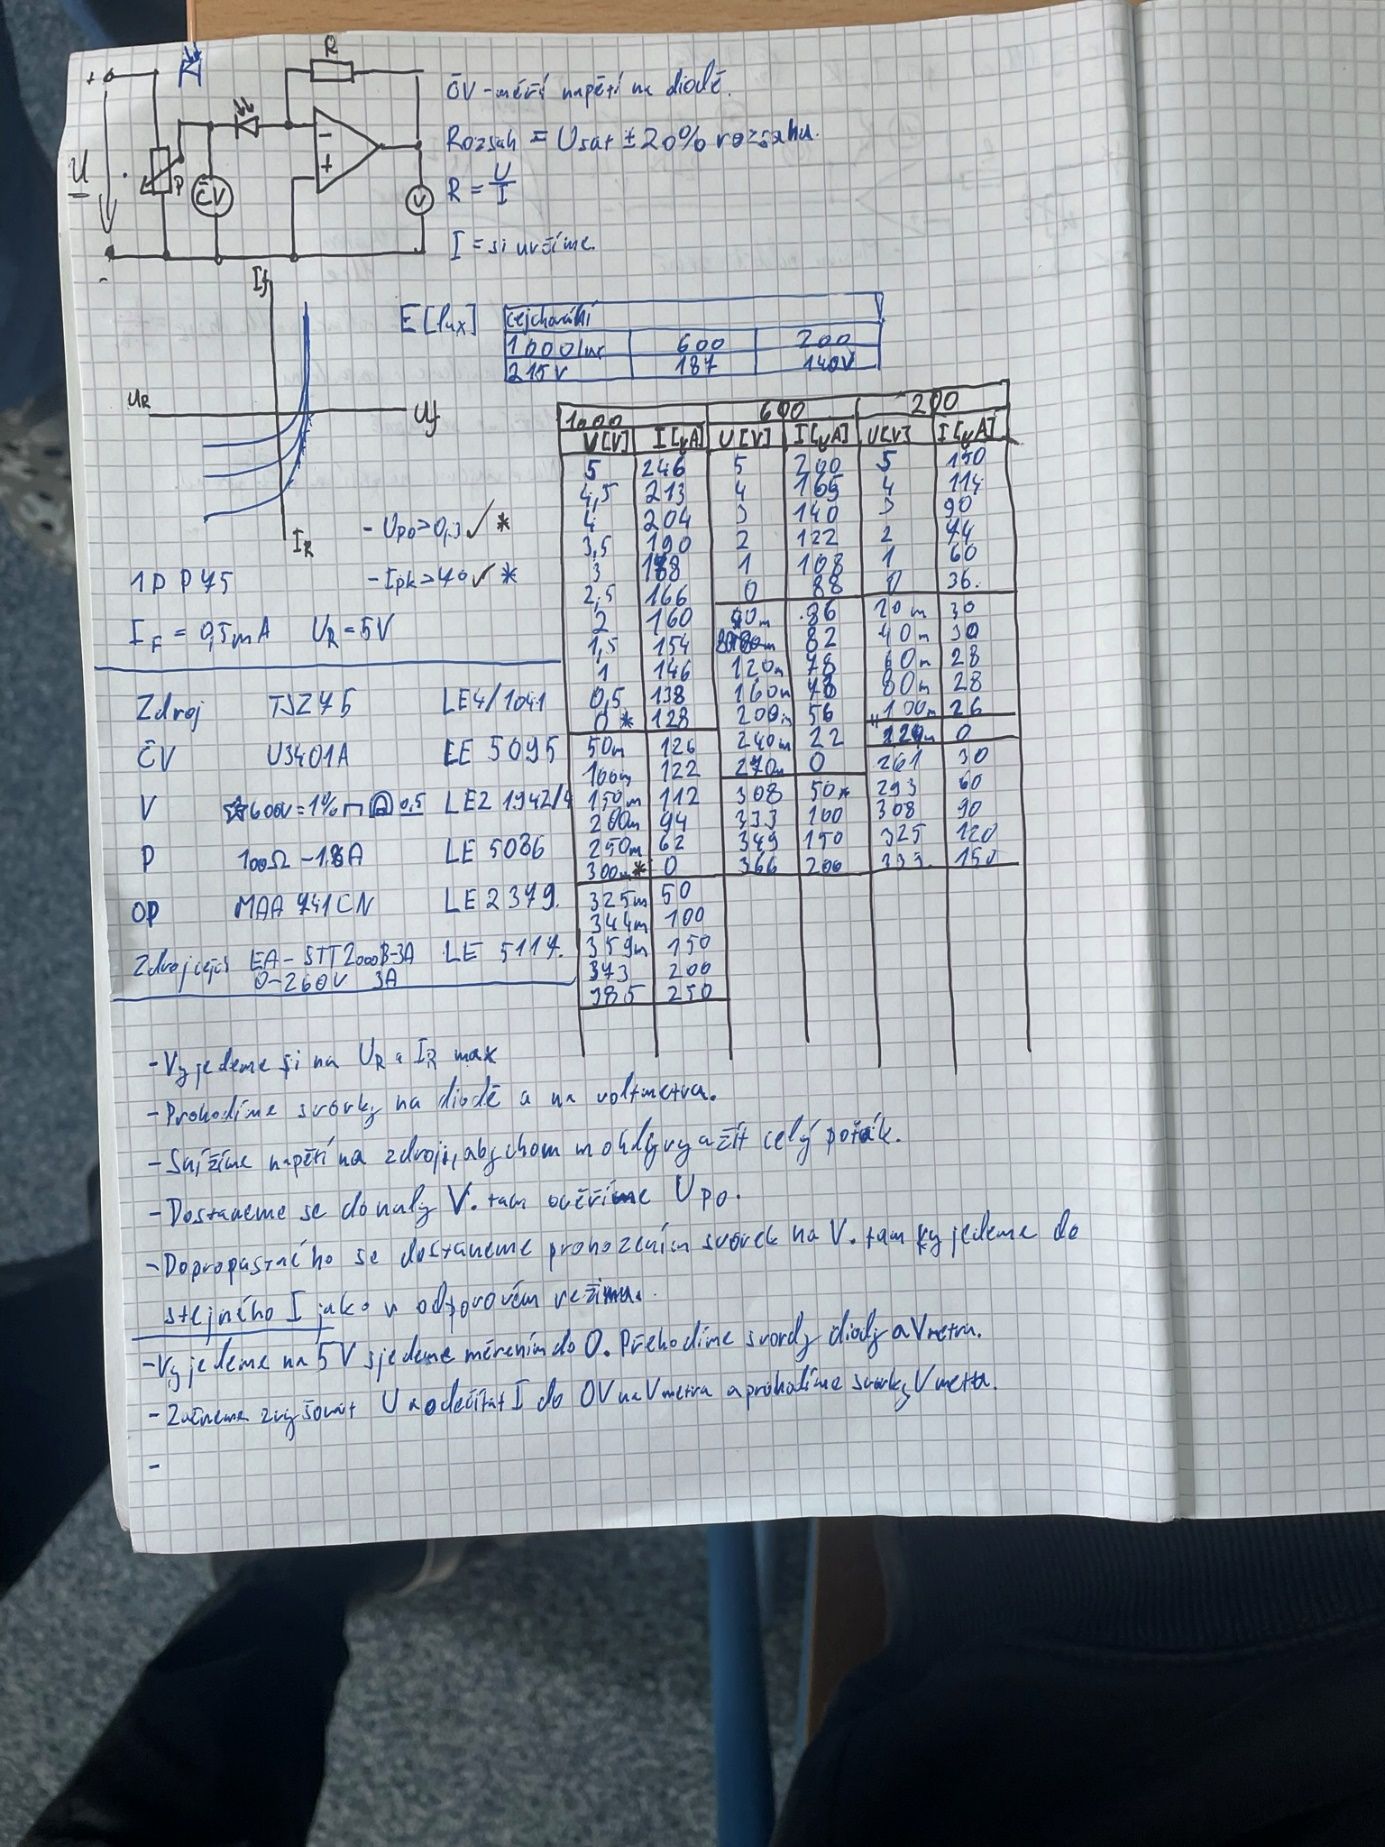 R
ČV - měří napětí na diodě.
Rozsah = Usat ± 20% rozsahu.
U
P
ČV
V
R = U/I
I = si určíme.
If
E [lux]
cejchování
1000lux 600 200
215V 187 140V
UR Uf
IR
1000 600 200
U[V] I[μA] U[V] I[μA] U[V] I[μA]
5 246 5 200 5 150
4,5 213 4 165 4 114
4 204 3 140 3 90
3,5 190 2 122 2 74
3 1 108 1 60
2,5 166 0 88 0 36.
2 160 86 20m 30
1,5 154 82 40m 30
1 146 120m 78 60m 28
0,5 138 160m 80m 28
0 * 128 200m 56 100m 26
50m 126 240m 22 0
100m 122 270m 0 261 30
150m 112 308 50* 293 60
200m 94 333 100 308 90
250m 62 349 150 325 120
300m* 0 366 200 339 150
325m 50
344m 100
359m 150
373 200
385 250
- Upo > 0,3 ✓ *
1PP75
- Ipk > 70 ✓ *
IF = 0,5mA UR = 5V
Zdroj TSZ75 LE4/1041
ČV U3401A EE 5095
V 600V = 1% 0,5 LE2 1942/
P 100Ω - 1,8A LE 5086
OP MAA 741CN LE 2379.
Zdroj cejch EA - STT2000B-3A LE 5117.
0-260V 3A
- Vyjedeme si na UR a IR max
- Prohodíme svorky na diodě a na voltmetru.
- Snížíme napětí na zdroji, abychom mohli využít celý
- Dostaneme se do nuly V. tam ověříme Upo.
- Dopropastného se dostaneme prohozením svorek na V. tam vyjedeme do
stejného I jako v odporovém režimu.
- Vyjedeme na 5V sjedeme měřením do 0. Přehodíme svorky diody a Vmetru.
- Začneme zvyšovat U a odečítat I do 0V na Vmetru a prohodíme svorky Vmetru.
-